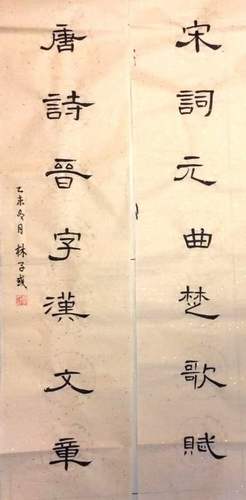 宋詞元曲楚歌賦
唐詩晉字漢文章
乙未冬月 林子彧